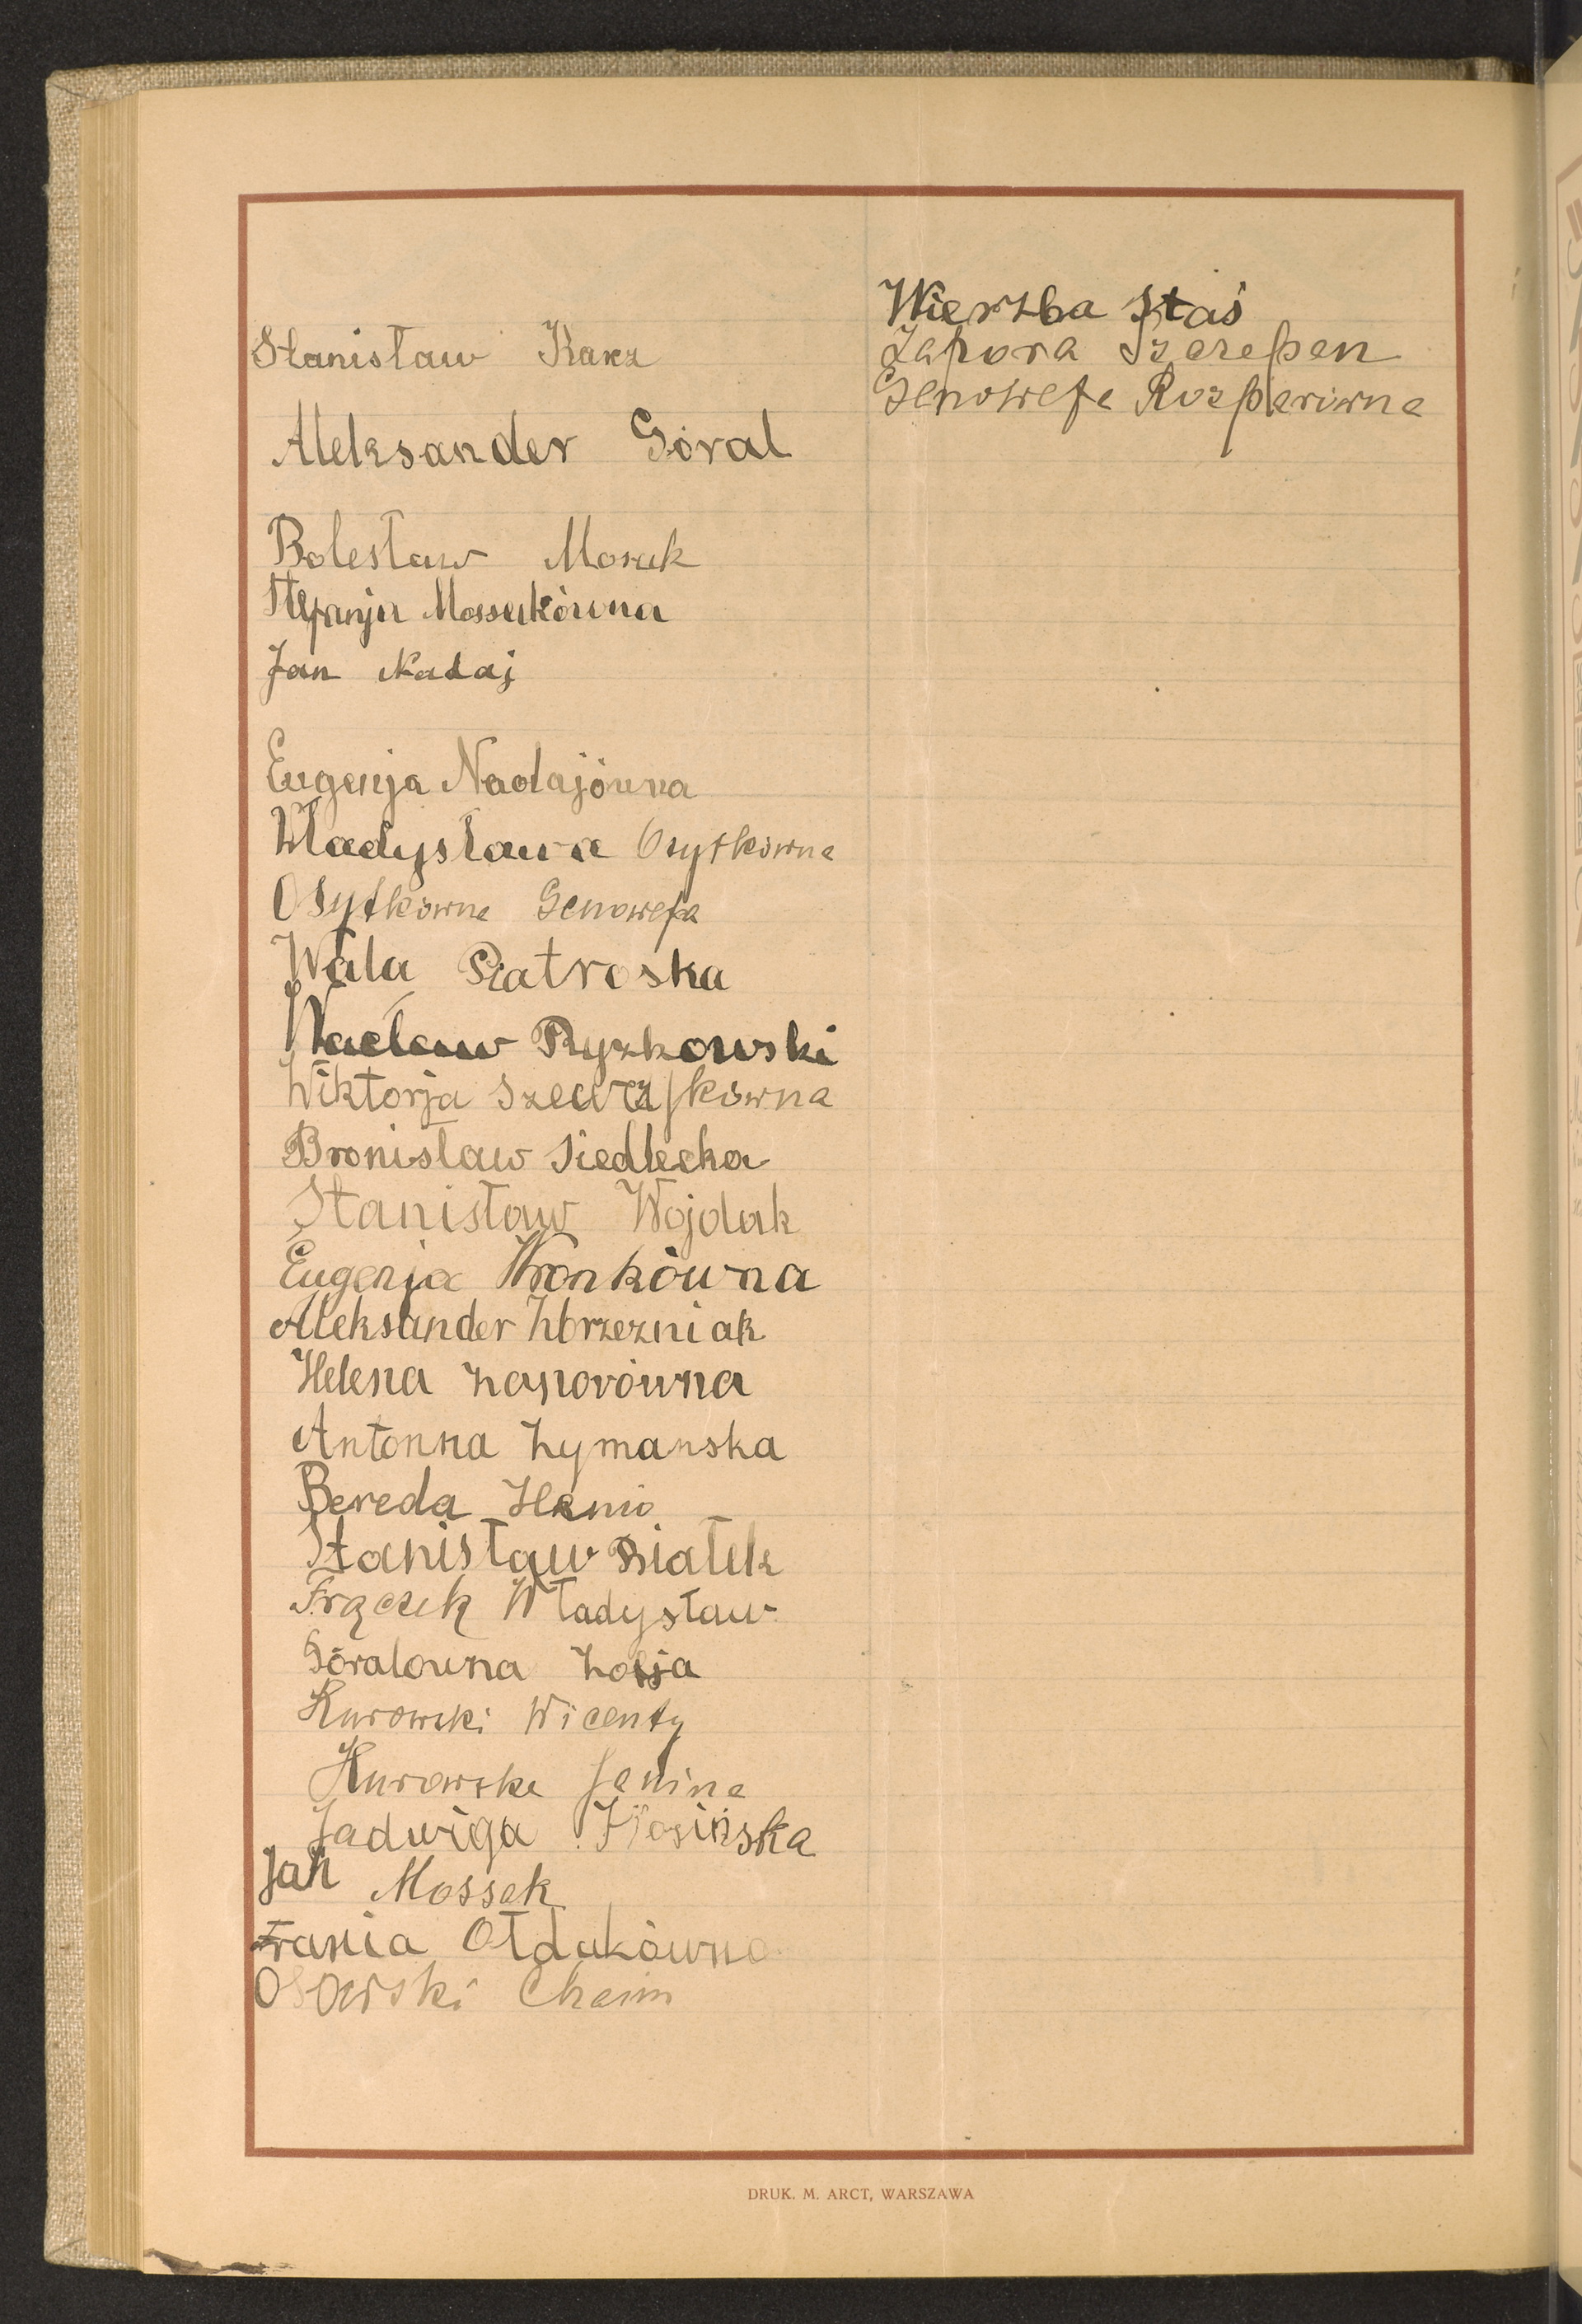 Stanisław Karz
Aleksander Góral
Bolesław Mosuk
Stefanja Mossukówna
Jan Nadaj
Eugenja Nadajówna
Władysława Osytkówna
Osytkówna Genowefa
Wala Piatroska
Wacław Ryzkowski
Wiktorja
Bronisław Siedlecka
Stanisław Wojdak
Eugenja Wronkówna
Aleksander Zbrzezniak
Helena Zaporówna
Antonna Zymanska
Bereda Henio
Stanisław Białek
Frączek Władysław
Góralowna Zosja
Kurowski Wicenty
Kurowska Janina
Jadwiga Kłosińska
Jan Mossak
Frania Ołdakówna
Osowski Chaim
Wierzba Staś
Zapora Szczepan
Genowefa
DRUK. M. ARCT, WARSZAWA